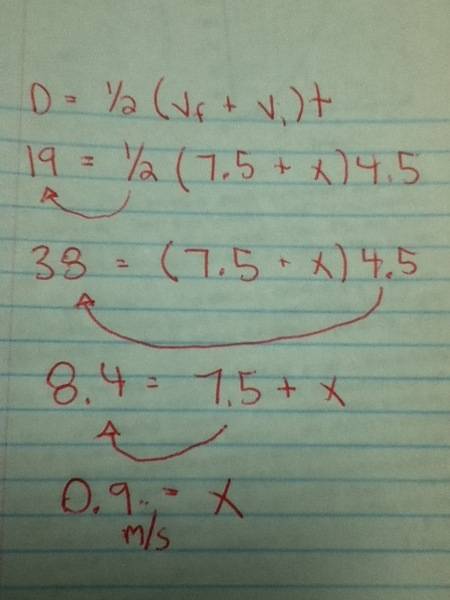 D = ½ (Vf + Vi)t
19 = ½ (7.5 + x)4.5
38 = (7.5 + x)4.5
8.4 = 7.5 + x
0.9.. = x
m/s